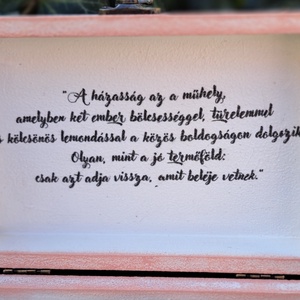 "A házasság az a műhely,
amelyben két ember bölcsességgel, türelemmel
s kölcsönös lemondással a közös boldogságon dolgozik
Olyan, mint a jó termőföld:
csak azt adja vissza, amit beléje vetnek."